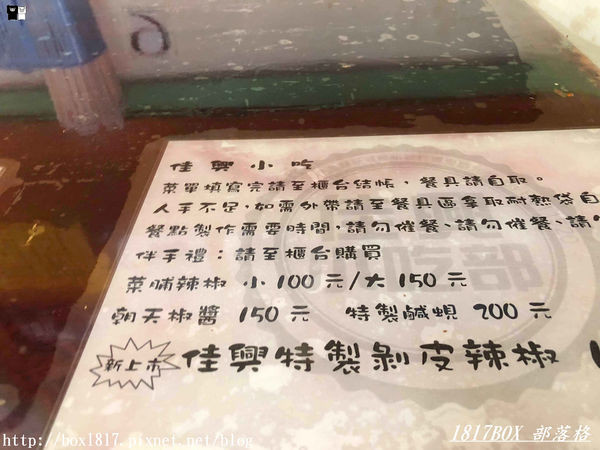 佳興小吃
菜單填寫完請至櫃台結帳，餐具請自取。
人手不足，如需外帶請至餐具區拿取耐熱袋自
餐點製作需要時間，請勿催餐、請勿催餐、請
伴手禮：請至櫃台購買
菜脯辣椒 小100元/大150元
朝天椒醬 150元 特製鹹蜆 200元
新上市 佳興特製剝皮辣椒
http://box1817.pixnet.net/blog
1817BOX 部落格